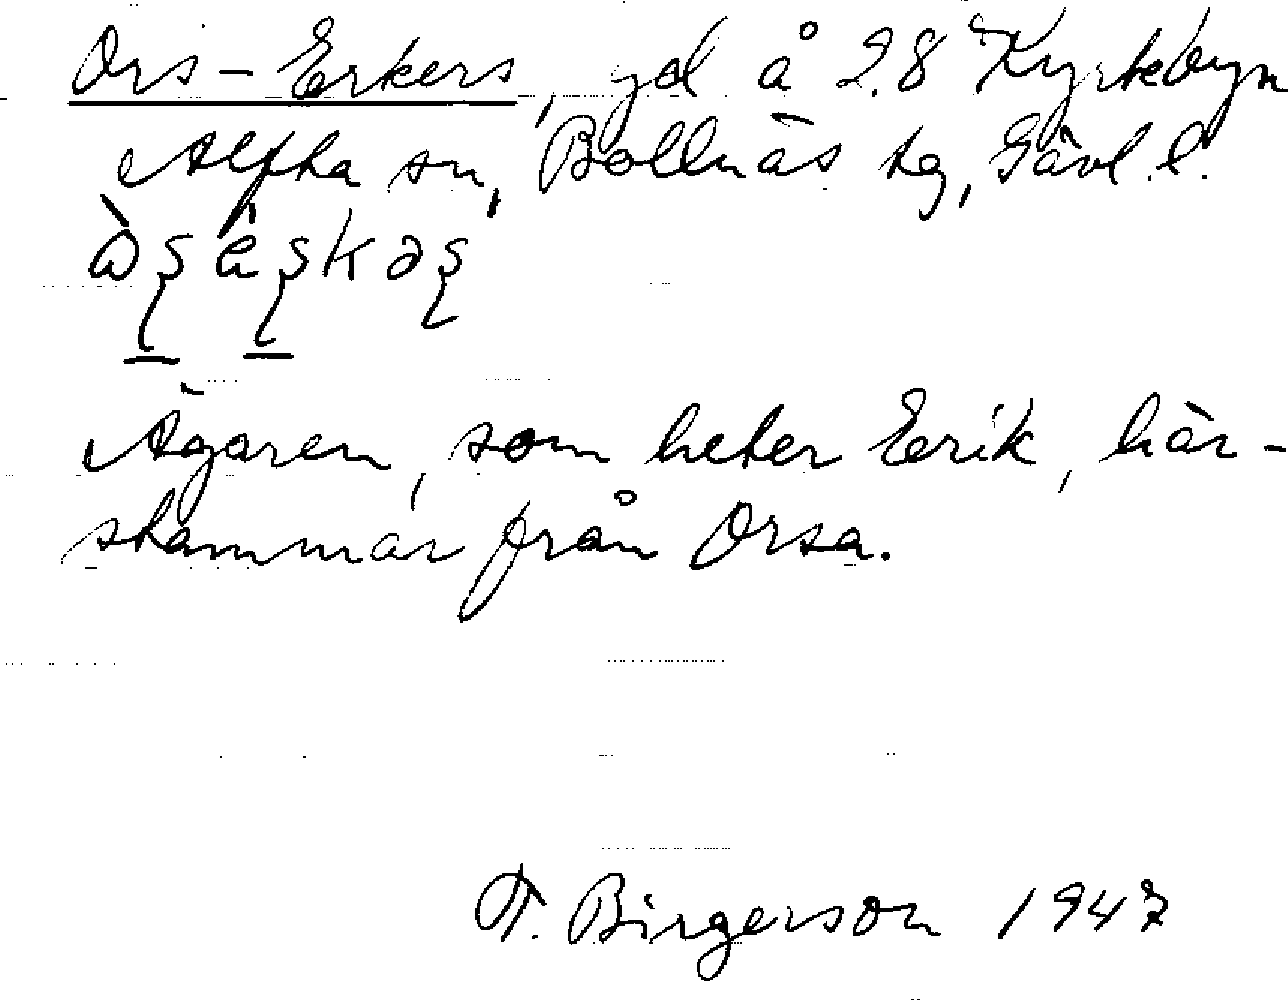 Ors-Erkers, gd å 2.8 Kyrkbyn
Alfta sn, Bollnäs tg, Gävl. l.
Ägaren, som heter Erik, här-
stammar från Orsa.
T. Birgerson 1947